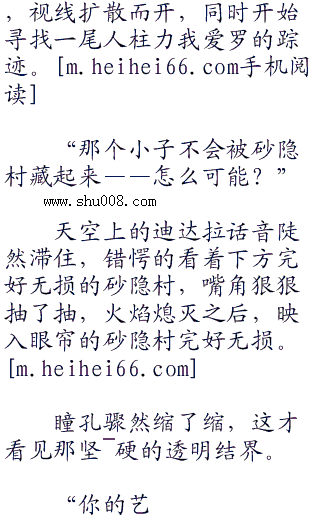 ，视线扩散而开，同时开始
寻找一尾人柱力我爱罗的踪
迹。[m.heihei66.com手机阅
读]
“那个小子不会被砂隐
村藏起来——怎么可能？”
www.shu008.com
天空上的迪达拉话音陡
然滞住，错愕的看着下方完
好无损的砂隐村，嘴角狠狠
抽了抽，火焰熄灭之后，映
入眼帘的砂隐村完好无损。
[m.heihei66.com]
瞳孔骤然缩了缩，这才
看见那坚¯硬的透明结界。
“你的艺